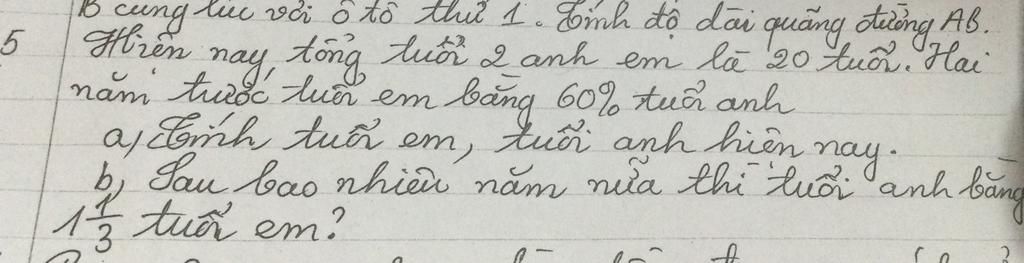 B cùng lúc với ô tô thứ 1. Tính độ dài quãng đường AB.
5 Hiện nay, tổng tuổi 2 anh em là 20 tuổi. Hai
năm trước, tuổi em bằng 60% tuổi anh
a, Tính tuổi em, tuổi anh hiện nay.
b, Sau bao nhiêu năm nữa thì tuổi anh bằng
1 1/3 tuổi em?